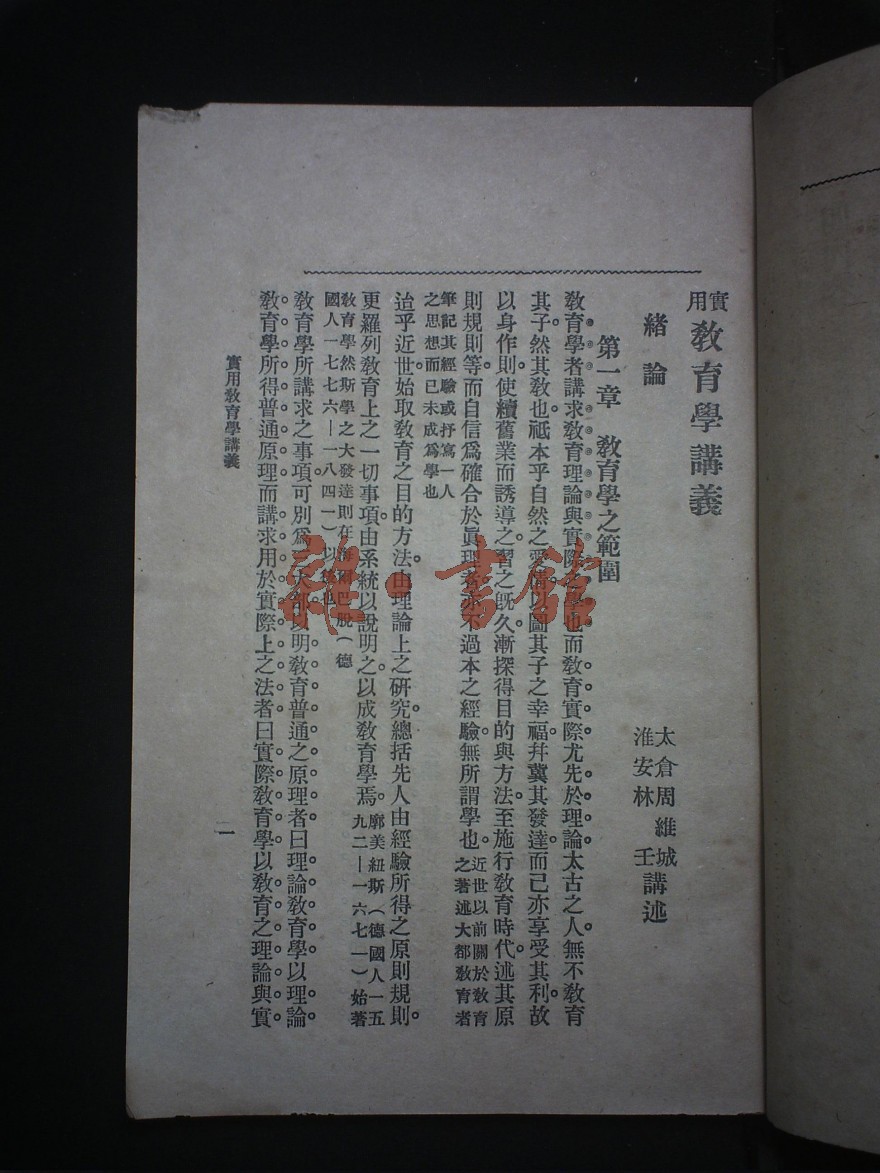 實用教育學講義
太倉周維城
淮安林　壬講述
緒論
第一章　教育學之範圍
教育學者講求教育理論與實際之學也而教育實際尤先於理論太古之人無不教育
其子然其教也祗本乎自然之愛情以圖其子之幸福幷冀其發達而已亦享受其利故
以身作則使續舊業而誘導之習之旣久漸探得目的與方法至施行教育時代述其原
則規則等而自信爲確合於眞理者亦不過本之經驗無所謂學也近世以前關於教育
之著述大都教育者
筆記其經驗或抒寫一人
之思想而已未成爲學也
迨乎近世始取教育之目的方法由理論上之硏究總括先人由經驗所得之原則規則
更羅列教育上之一切事項由系統以說明之以成教育學焉廓美紐斯（德國人一五
九二—一六七一）始著
教育學然斯學之大發達則在海爾巴脫（德
國人一七七六—一八四一）以後也
教育學所講求之事項可別爲三大部以明教育普通之原理者曰理論教育學以理論
教育學所得普通原理而講求用於實際上之法者曰實際教育學以教育之理論與實
實用教育學講義
雜·書館